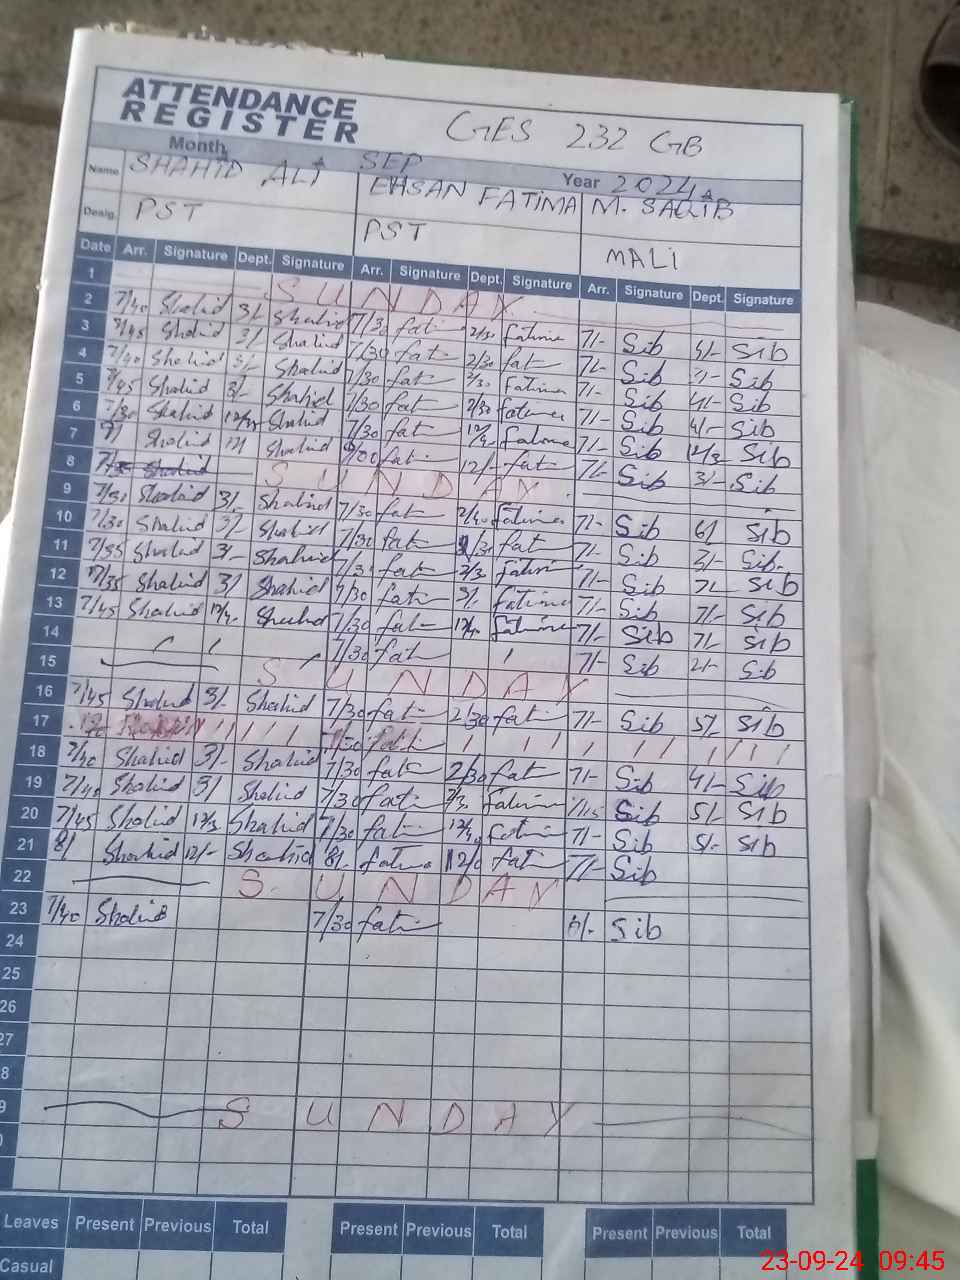 ATTENDANCE
REGISTER
GES 232 GB
Month SEP Year 2024
Name SHAHID ALI EHSAN FATIMA M. SAQIB
Desig. PST PST MALI
Date Arr. Signature Dept. Signature Arr. Signature Dept. Signature Arr. Signature Dept. Signature
1 SUNDAY
2 7/40 Shahid 3/- Shahid 7/30 fati 2/30 Fatima 7/- Sib 6/- Sib
3 7/45 Shahid 3/- Shahid 7/30 fati 2/30 fati 7/- Sib Sib
4 7/40 Shahid 3/- Shahid 7/30 fati 2/30 Fatima 7/- Sib 4/- Sib
5 7/45 Shahid 3/- Shahid 7/30 fati 2/30 fatima 7/- Sib 4/- Sib
6 7/30 Shahid Shahid 7/30 fati Fatima 7/- Sib Sib
7 Shahid 12/ Shahid fati 12/- fati 7/- Sib 3/- Sib
8 SUNDAY
9 7/30 Shahid 3/- Shahid 7/30 fati 2/40 Fatima 7/- Sib 6/ Sib
10 7/30 Shahid 3/- Shahid 7/30 fati fati 7/- Sib 3/- Sib
11 7/35 Shahid 3/- Shahid 7/30 fati 2/30 Fatima 7/- Sib 7/- Sib
12 7/35 Shahid 3/ Shahid 7/30 fati 3/- Fatima 7/- Sib 7/- Sib
13 7/45 Shahid Shahid 7/30 fati Fatima 7/- Sib 7/- Sib
14 7/30 fati 7/- Sib 2/- Sib
15 SUNDAY
16 7/45 Shahid 3/- Shahid 7/30 fati 2/30 fati 7/- Sib 5/- Sib
17 7/30 fati
18 7/40 Shahid 3/- Shahid 7/30 fati 2/30 fat 7/- Sib 4/- Sib
19 7/40 Shahid 3/ Shahid 7/30 fati Fatima Sib 5/- Sib
20 7/45 Shahid Shahid 7/30 fati Fatima 7/- Sib 5/- Sib
21 8/ Shahid 12/- Shahid 8/- fatima fati 7/- Sib
22 SUNDAY
23 7/40 Shahid 7/30 fati 6/- Sib
24
25
26
27
8
9 SUNDAY
Leaves Present Previous Total Present Previous Total Present Previous Total
Casual
23-09-24 09:45